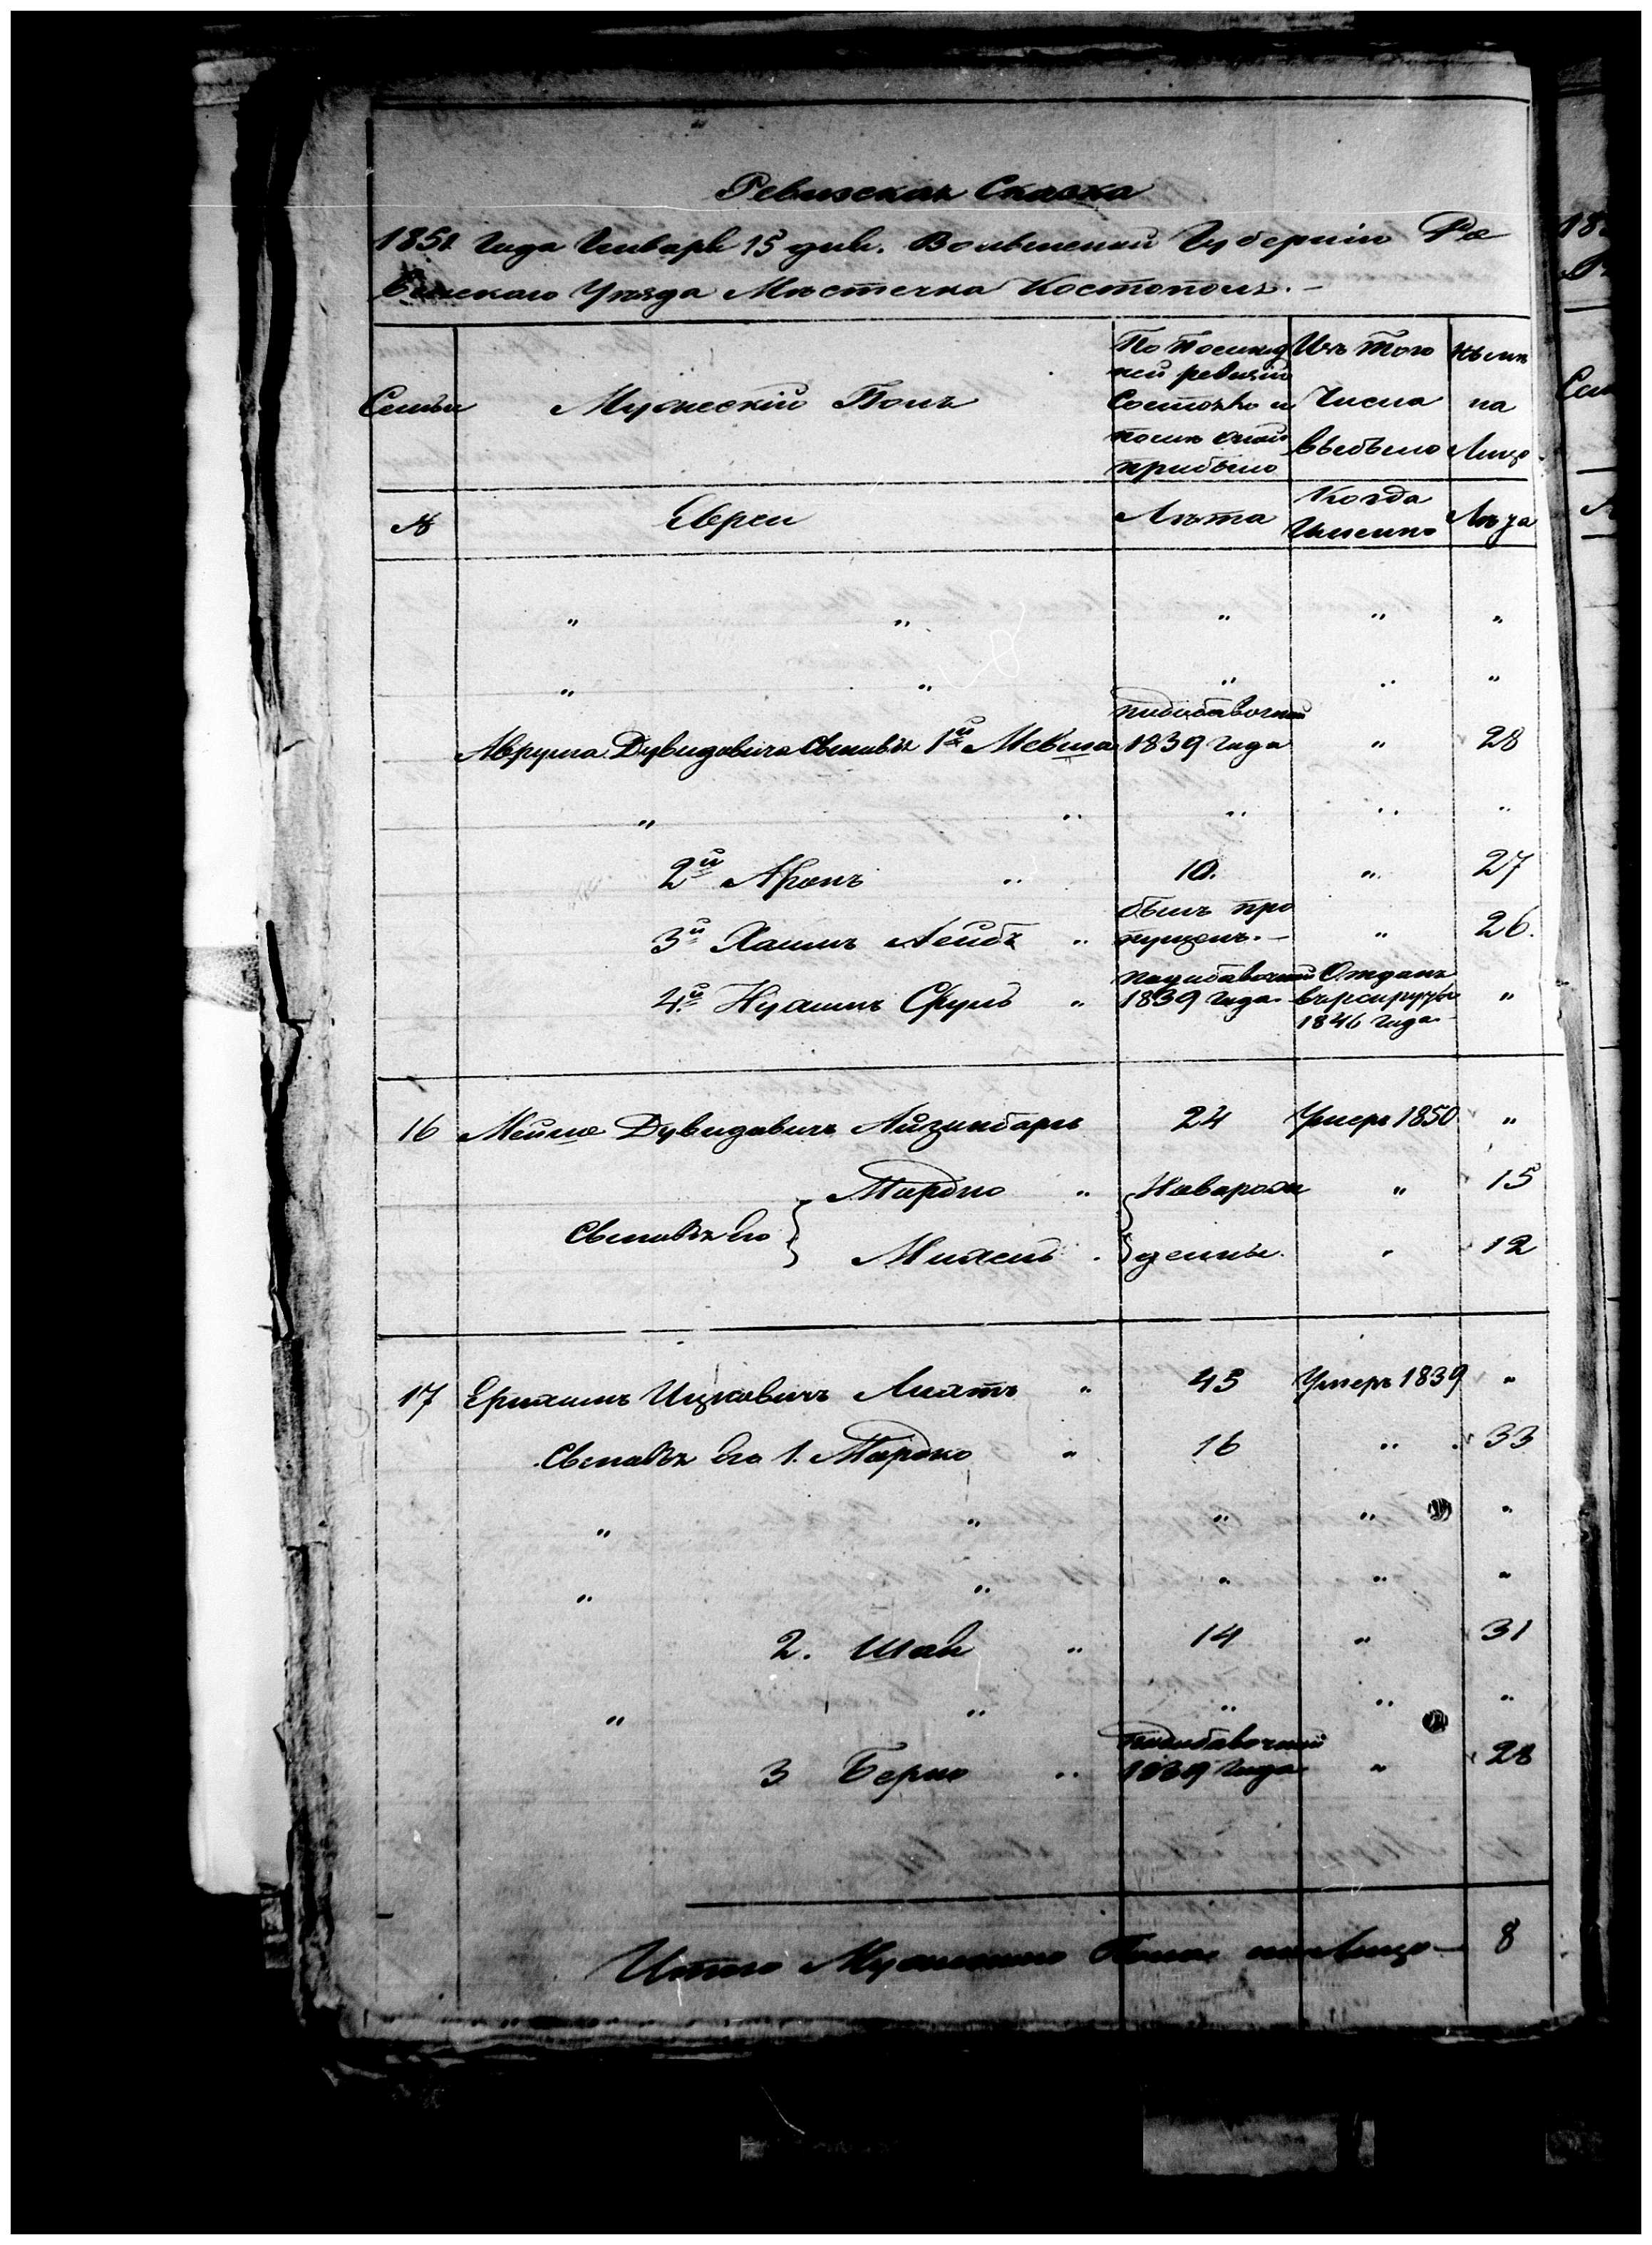 Ревизская Сказка
1851 Года Генваря 15 дня. Волынской Губернии Ро
венскаго Уезда Мѣстечка Костополь.
Семьи
Мужескій Полъ
По послѣд
ней ревизіи
состояло и
послѣ оной
прибыло
Изъ того
Числа
выбыло
Нынѣ
на
Лицо
№
Евреи
Лѣта
Когда
Именно
Лѣта
" " " " "
" " " " "
Аврума Дувидовича Сыновья 1й Мевша прибавочной 1839 года " 28
" " " " "
2й Аронъ " 10. " 27
3й Хаимъ Лейбъ " былъ пропущенъ. " 26.
4й Нухимъ Сруль " 1839 года Отданъ в рекруты 1846 года "
16 Мейше Дувидовичъ Айзинбаргъ 24 Умеръ 1850 "
Сыновья его
Мордко " Новорож " 15
Михель денны. " 12
17 Ерихимъ Ицковичъ Лихтъ " 45 Умеръ 1839 "
Сыновья его 1. Мордко " 16 " 33
" " " " "
" " " " "
2. Шая " 14 " 31
" " " " "
3 Берко " 1839 года " 28
Итого Мужескаго Пола на Лицо 8